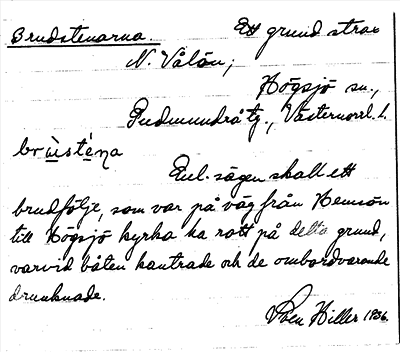 Brudstenarna. Ett grund strax
N. Vålön;
Högsjö sn.,
Gudmundrå tg., Västernorrl. l.
brùsténa
Enl. sägen skall ett
brudfölje, som var på väg från Hemsön
till Högsjö kyrka ha rott på detta grund,
varvid båten kantrade och de ombordvarande
drunknade.
Hiller 1936.